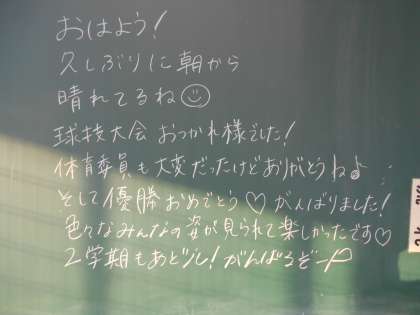 おはよう!
久しぶりに朝から
晴れてるね☺
球技大会 おつかれ様でした!
体育委員も大変だったけどありがとうね♪
そして優勝おめでとう♡ がんばりました!
色々なみんなの姿が見られて楽しかったです♡
2学期もあと少し! がんばるぞー